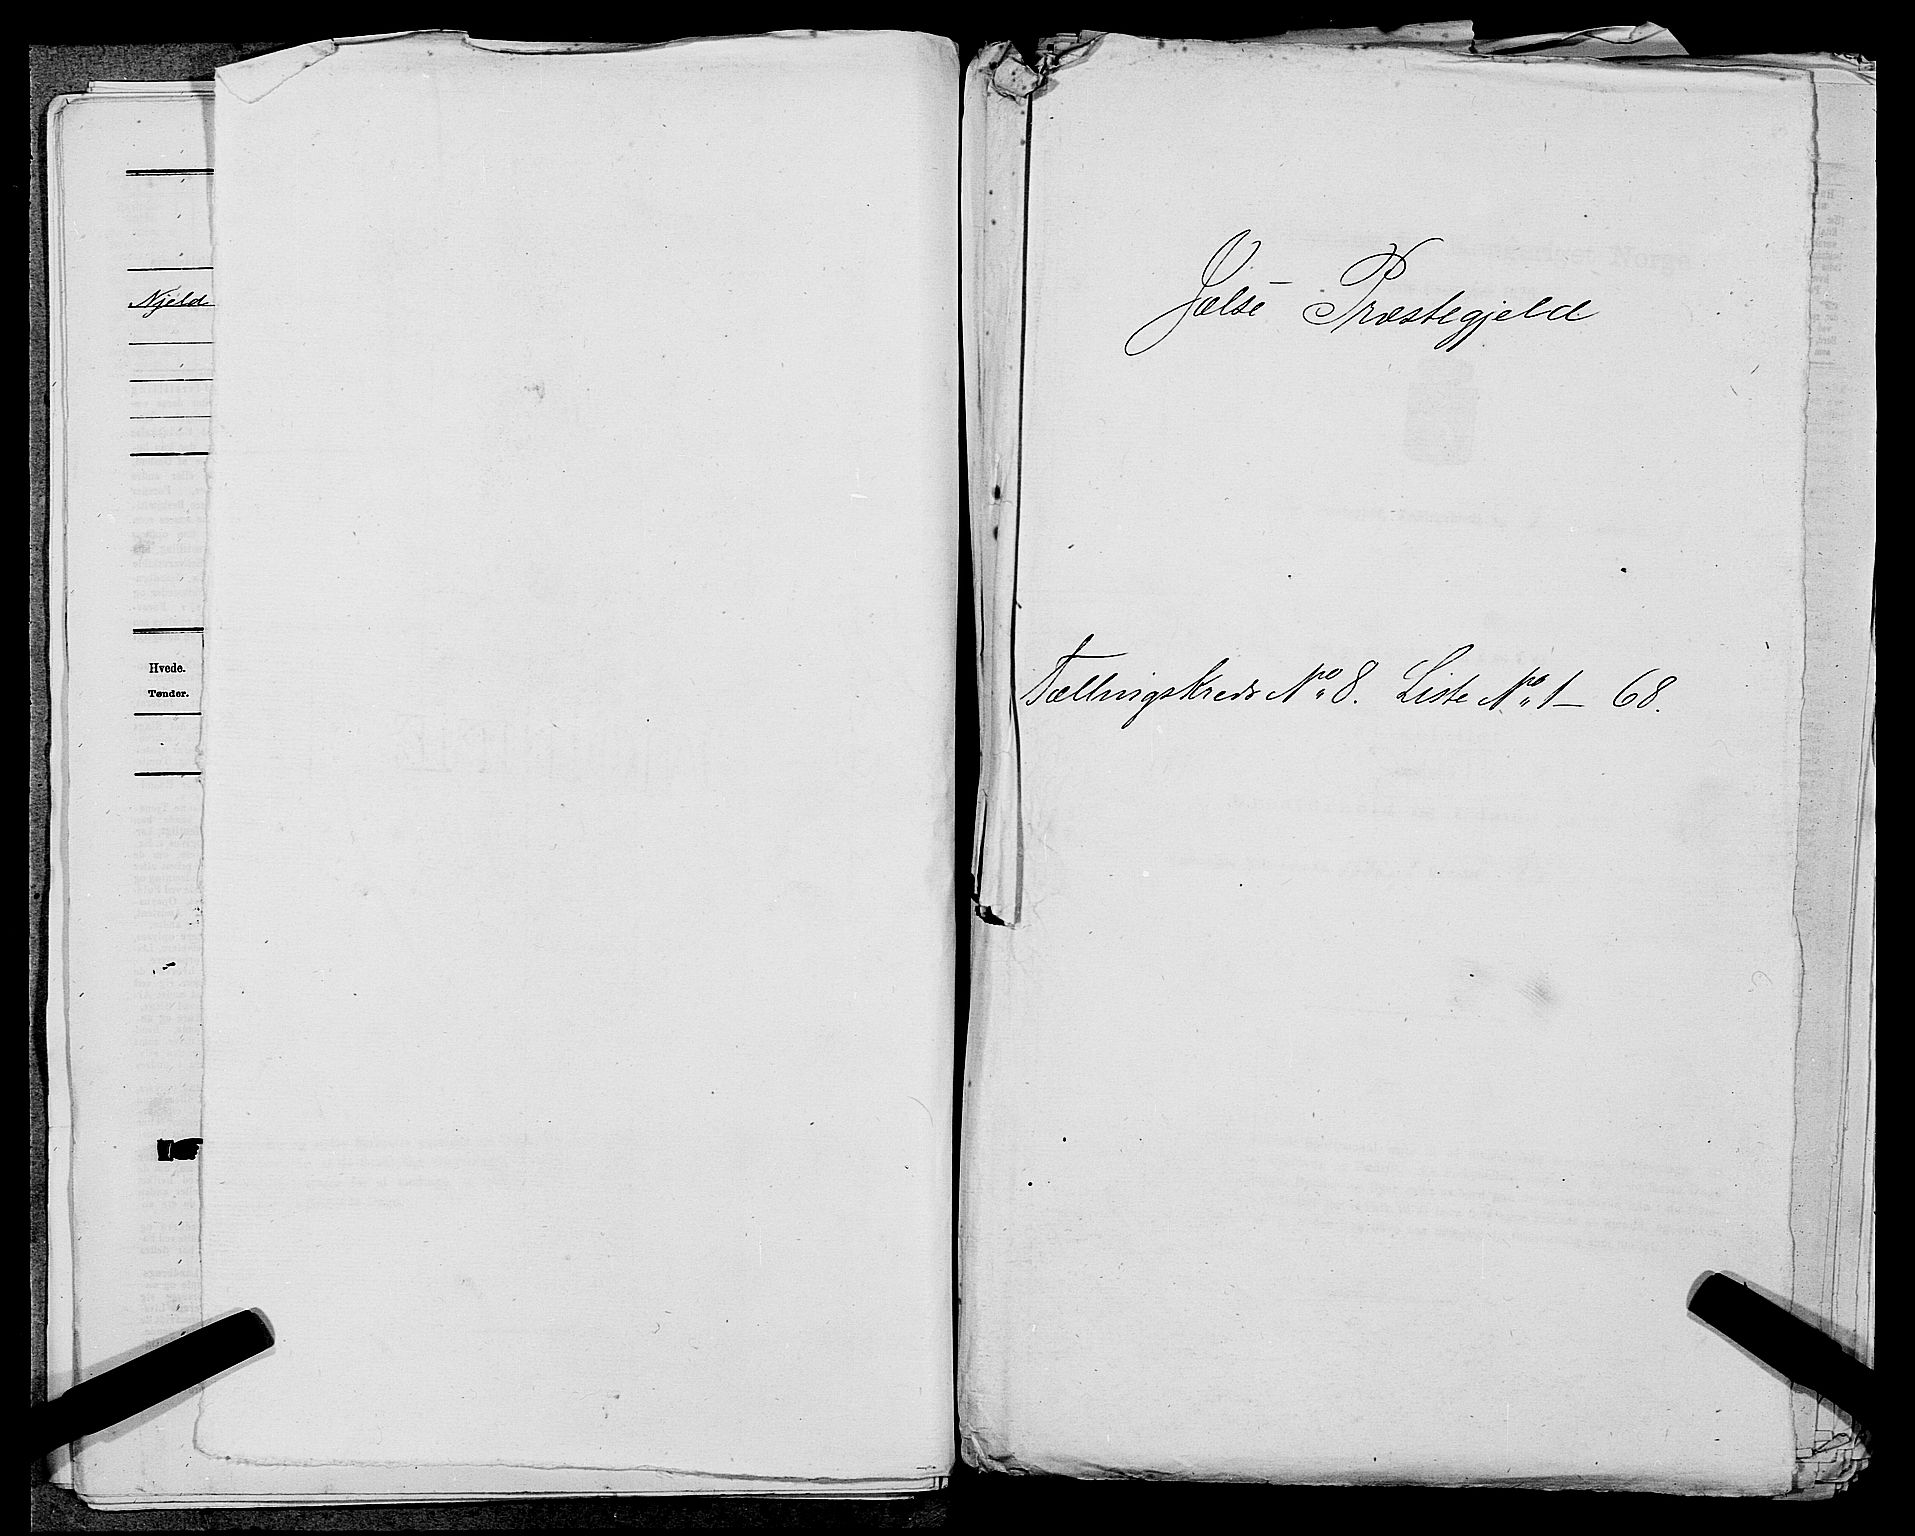 Njeld
Hvede.
Tønder.
Jælse Præstegjeld
Tællingskreds No 8. Liste No 1 - 68.